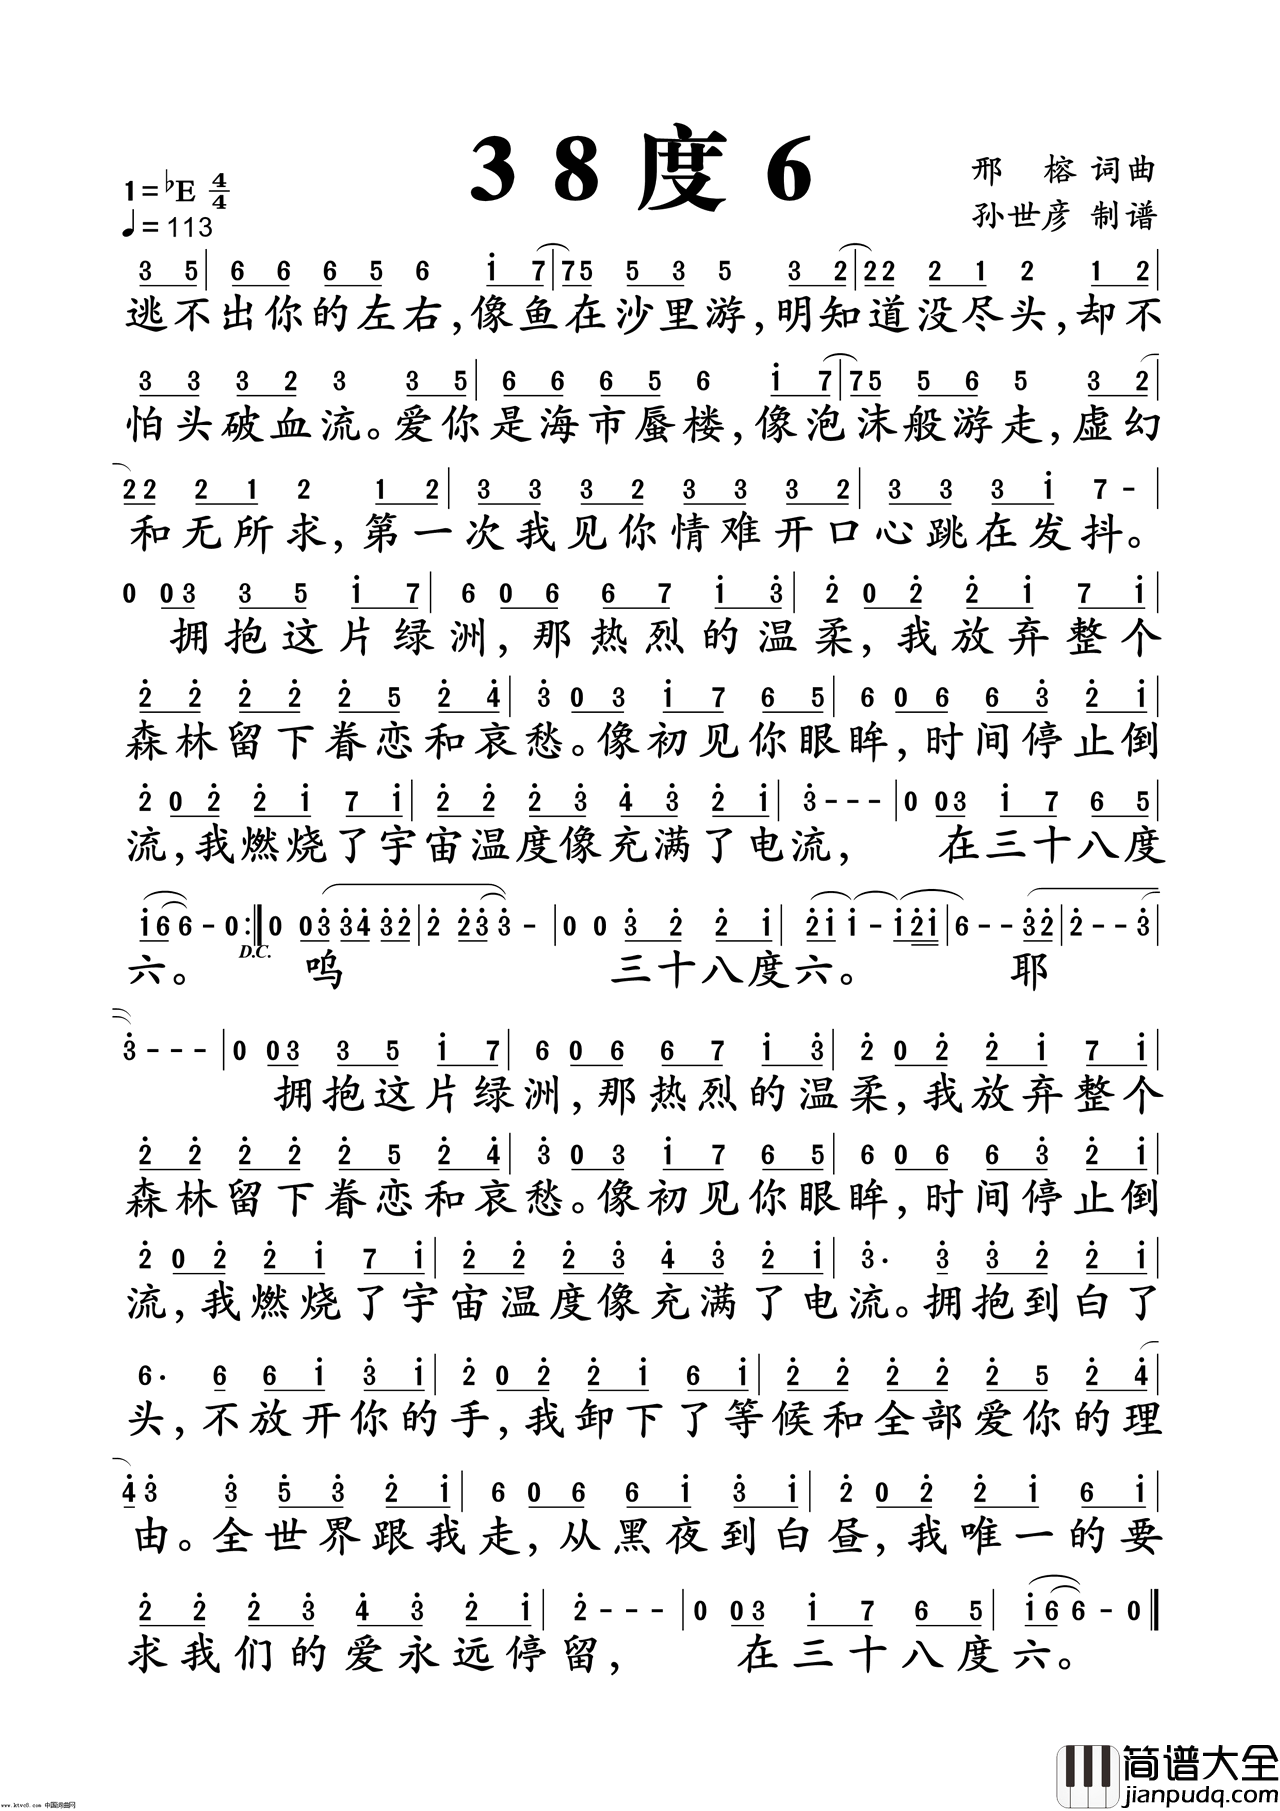 38度6
邢 榕 词曲
孙世彦 制谱
1=♭E 4/4
♩=113
3 5| 6 6 6 5 6 i 7|75 5 3 5 3 2|22 2 1 2 1 2|
逃不出你的左右,像鱼在沙里游,明知道没尽头,却不
3 3 3 2 3 3 5| 6 6 6 5 6 i 7|75 5 6 5 3 2|
怕头破血流。爱你是海市蜃楼,像泡沫般游走,虚幻
22 2 1 2 1 2| 3 3 3 2 3 3 3 2| 3 3 3 i 7 -|
和无所求,第一次我见你情难开口心跳在发抖。
0 03 3 5 i 7| 6 06 6 7 i 3̇| 2̇ 02̇ 2̇ i 7 i|
拥抱这片绿洲,那热烈的温柔,我放弃整个
2̇ 2̇ 2̇ 2̇ 2̇ 5 2̇ 4̇| 3̇ 03 i 7 6 5| 6 06 6 3̇ 2̇ i|
森林留下眷恋和哀愁。像初见你眼眸,时间停止倒
2̇ 02̇ 2̇ i 7 i| 2̇ 2̇ 2̇ 3̇ 4̇ 3̇ 2̇ i| 3̇---|0 03 i 7 6 5|
流,我燃烧了宇宙温度像充满了电流, 在三十八度
i66-0:‖0 03̇ 3̇4̇ 3̇2̇|2̇ 2̇3̇ 3̇-|0 0 3̇ 2̇ 2̇ i|2̇i i-i2̇i|6--3̇2̇|2̇--3̇|
D.C.
六。 呜 三十八度六。 耶
3̇---|0 03 3 5 i 7| 6 06 6 7 i 3̇| 2̇ 02̇ 2̇ i 7 i|
拥抱这片绿洲,那热烈的温柔,我放弃整个
2̇ 2̇ 2̇ 2̇ 2̇ 5 2̇ 4̇| 3̇ 03 i 7 6 5| 6 06 6 3̇ 2̇ i|
森林留下眷恋和哀愁。像初见你眼眸,时间停止倒
2̇ 02̇ 2̇ i 7 i| 2̇ 2̇ 2̇ 3̇ 4̇ 3̇ 2̇ i| 3̇· 3̇ 3̇ 2̇ 2̇ i|
流,我燃烧了宇宙温度像充满了电流。拥抱到白了
6· 6 6 i 3̇ i| 2̇ 02̇ 2̇ i 6 i| 2̇ 2̇ 2̇ 2̇ 2̇ 5 2̇ 4̇|
头,不放开你的手,我卸下了等候和全部爱你的理
4̇3̇ 3̇ 5̇ 3̇ 2̇ i| 6 06 6 i 3̇ i| 2̇ 02̇ 2̇ i 6 i|
由。全世界跟我走,从黑夜到白昼,我唯一的要
2̇ 2̇ 2̇ 3̇ 4̇ 3̇ 2̇ i| 2̇---|0 03 i 7 6 5| i66-0‖
求我们的爱永远停留, 在三十八度六。
简谱大全
jianpudq.com
www.ktvc8.com 中国词曲网